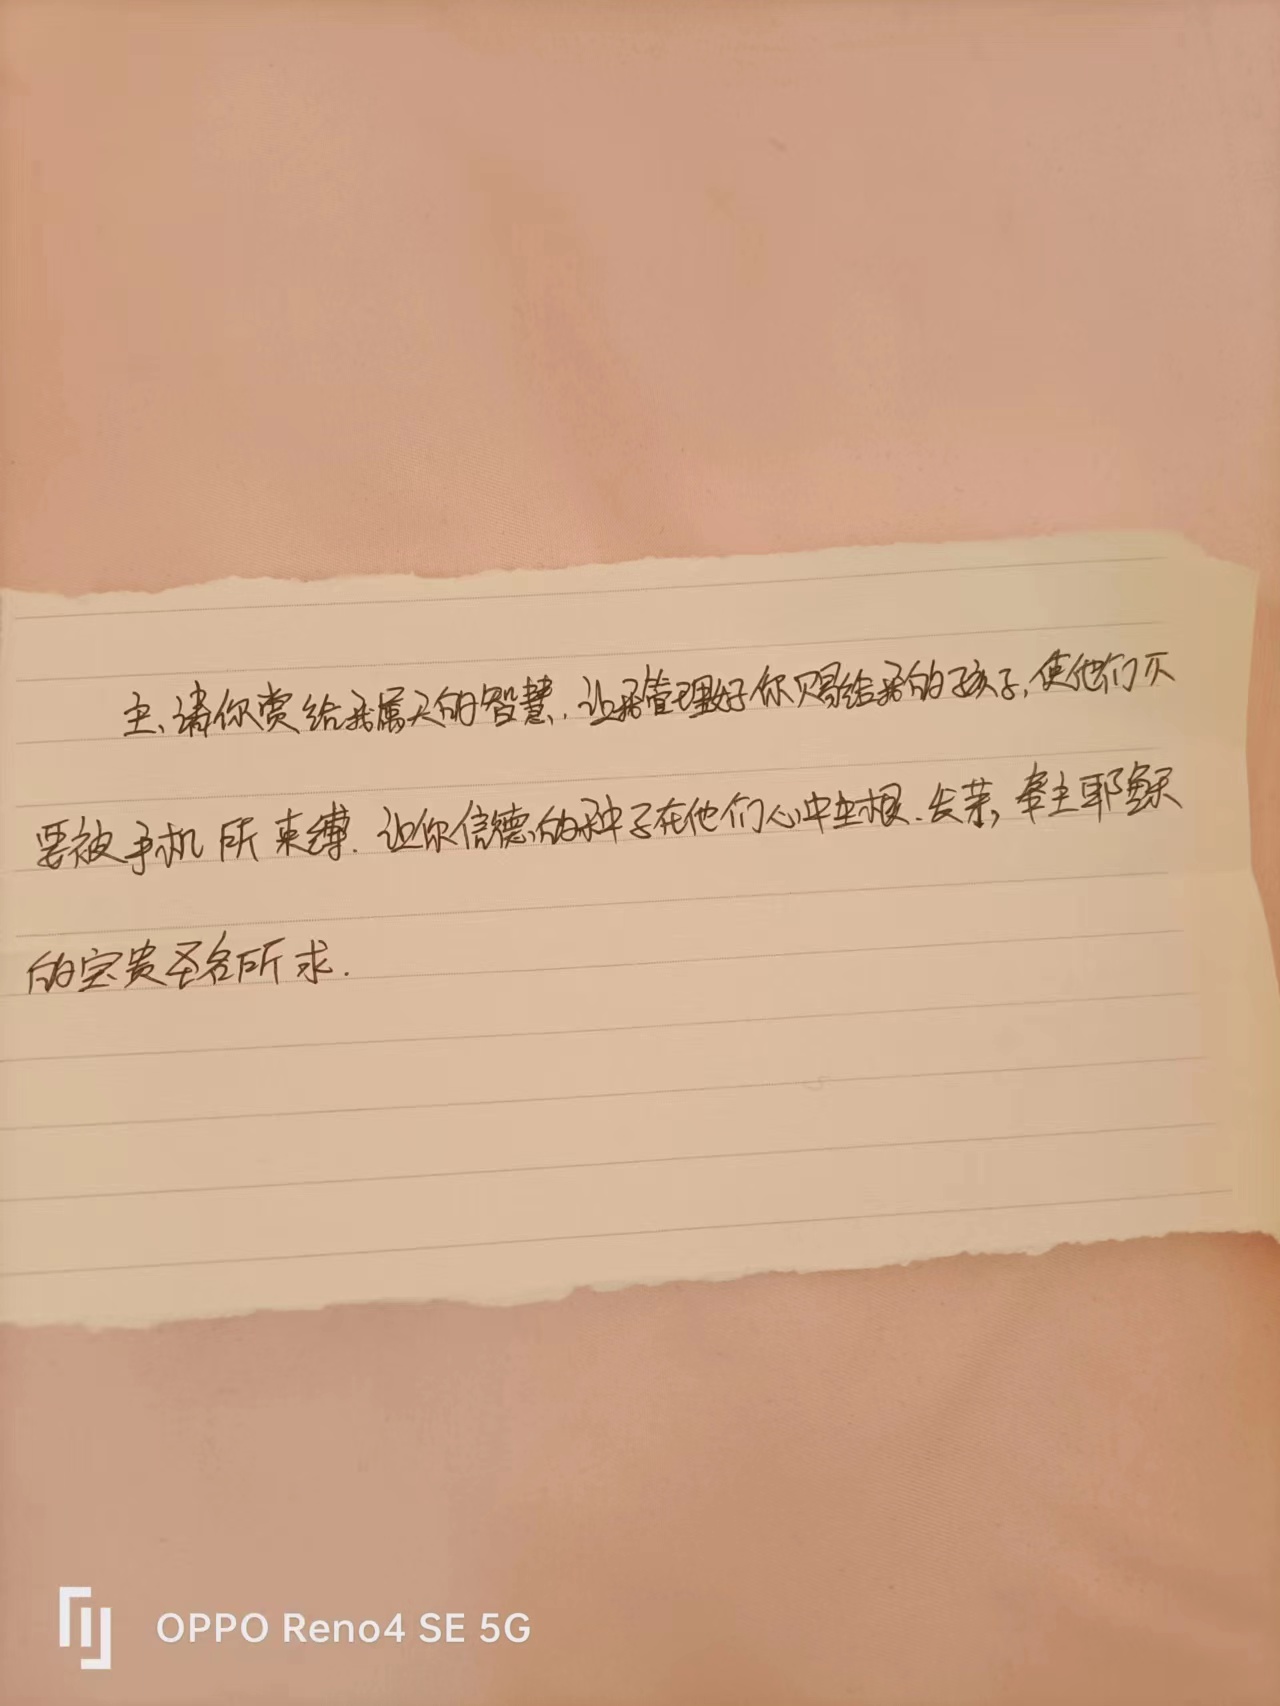 主、请你赏给我属天的智慧.让我管理好你赐给我的孩子,使他们不
要被手机所束缚.让你信德的种子在他们心中生根.发芽,奉主耶稣
的宝贵圣名所求.
OPPO Reno4 SE 5G